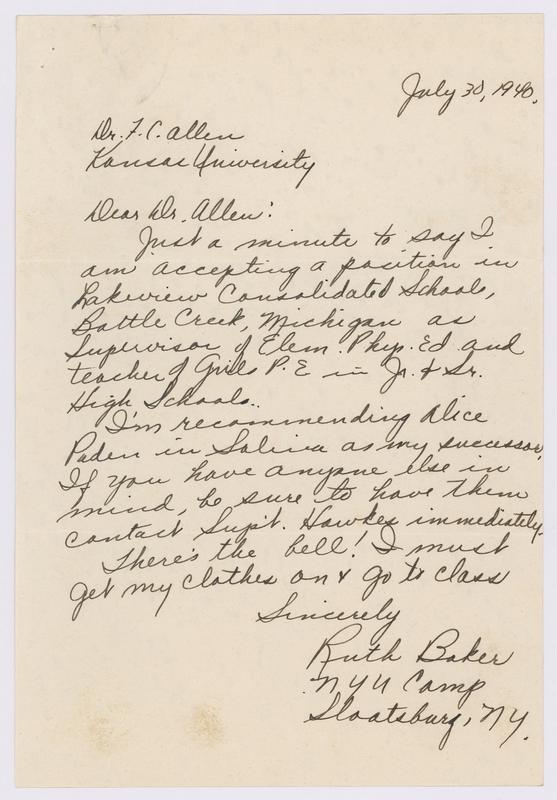 July 30, 1940.
Dr. F. C. Allen
Kansas University
Dear Dr. Allen:
Just a minute to say I
am accepting a position in
Lakeview Consolidated Schools,
Battle Creek, Michigan as
Supervisor of Elem. Phys. Ed and
teacher of Girls P. E in Jr. & Sr.
High Schools.
I'm recommending Alice
Paden in Salina as my successor.
If you have anyone else in
mind, be sure to have them
contact Sup't. Hawkes immediately.
There's the bell! I must
get my clothes on & go to class
Sincerely
Ruth Baker
NYU Camp
Sloatsburg, NY.